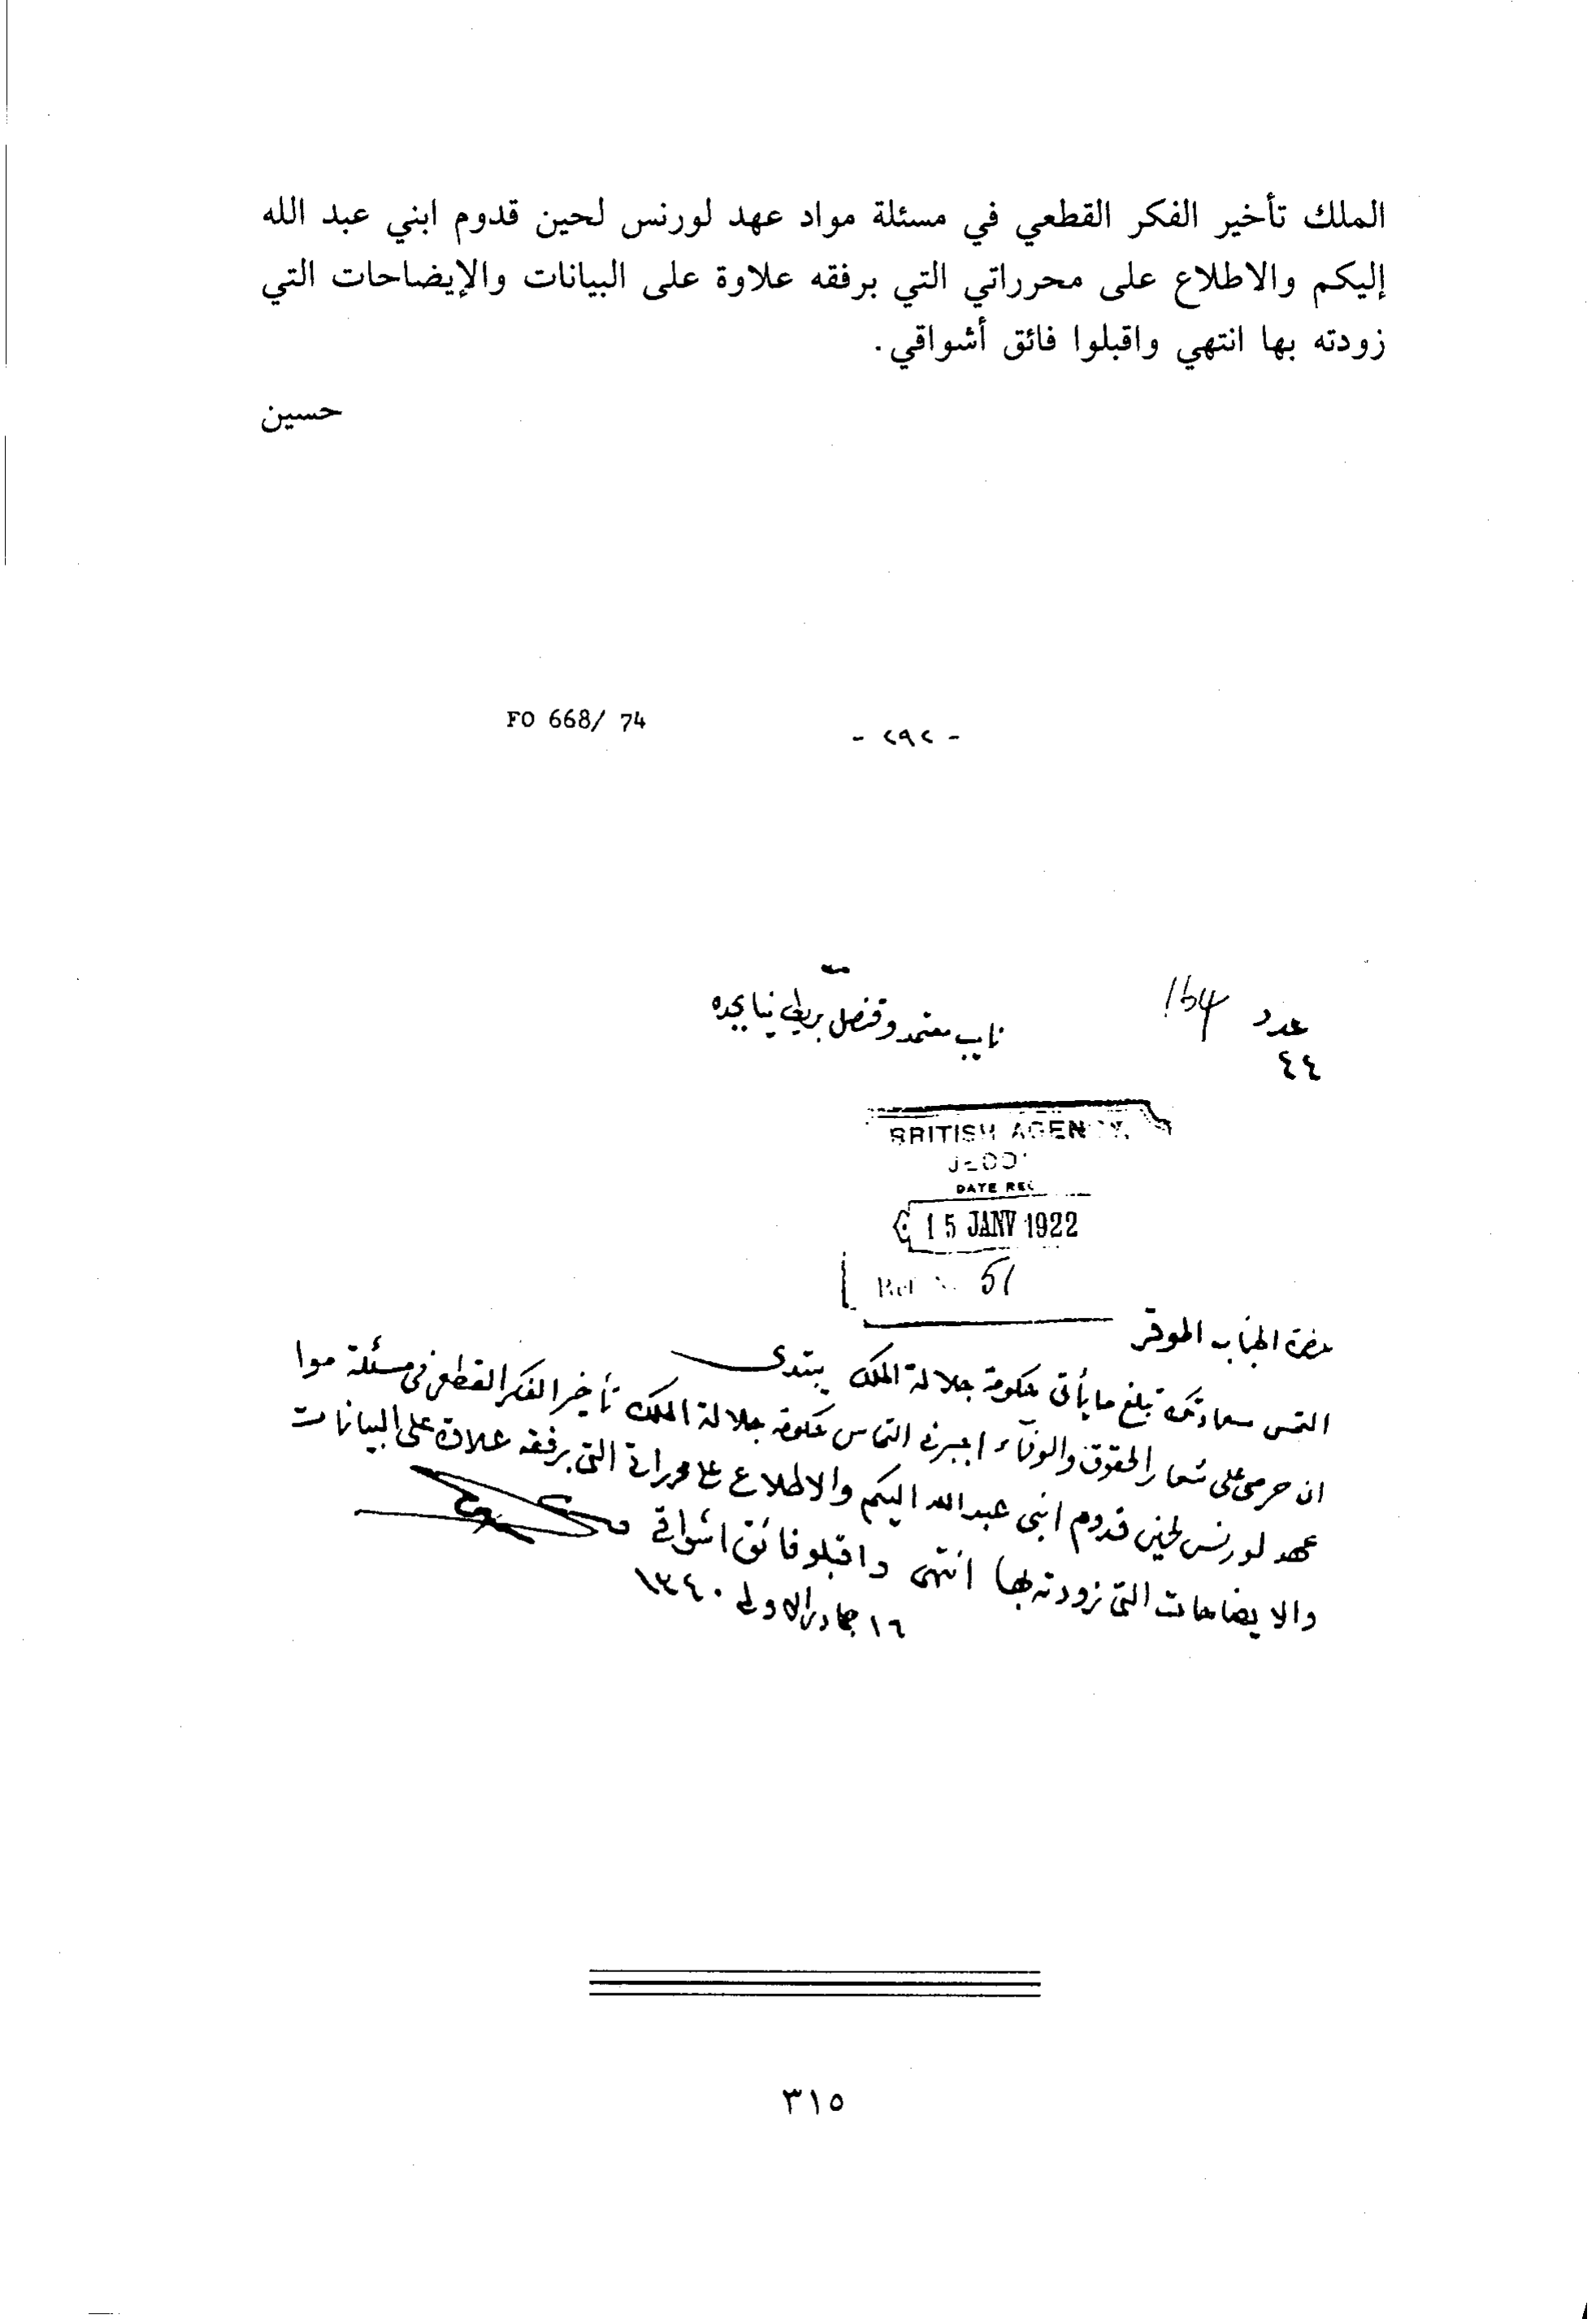 الملك تأخير الفكر القطعي في مسئلة مواد عهد لورنس لحين قدوم ابني عبد الله
إليكم والاطلاع على محرراتي التي برفقه علاوة على البيانات والإيضاحات التي
زودته بها انتهي واقبلوا فائق أشواقي .
حسين
FO 668/ 74
- ٢٩٢ -
عدد
٤٤
نايب معتمد وقنصل بريطانيا بجده
BRITISH AGENCY,
DATE REC
15 JANV 1922
51
حضرة الجناب الموقر
التمس سعادتكم تبلغ ما يأتى حكومة جلالة الملك يبتدى
ان حرصى على شعار الحقوق والوفاء اجبرنى التماس حكومة جلالة الملك تأخير الفكر القطعى فى مسئلة موا
عهد لورنس لحين قدوم ابنى عبدالله اليكم والاطلاع على محرراتى التى برفقه علاوة على البيانات
والايضاحات التى زودته بها انتهى واقبلو فائق اشواقى
١٦ جمادى الاولى ١٣٤٠
٣١٥